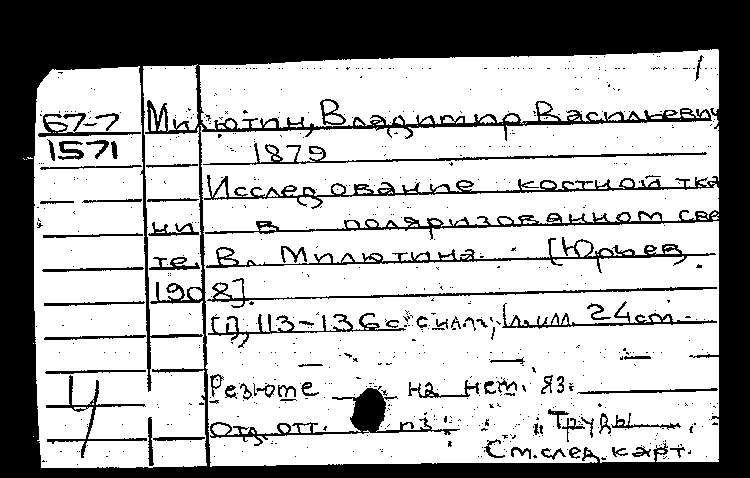 1
67-7 Милютин, Владимир Васильевич
1571 1879
Исследование костной тка
ни в поляризованном све
те. Вл. Милютина. [Юрьев,
1908].
[1], 113-136 с. с илл.; 1 л. илл. 24 см.
Резюме на нем. яз.
Отд. отт. из: „Труды
См. след. карт.